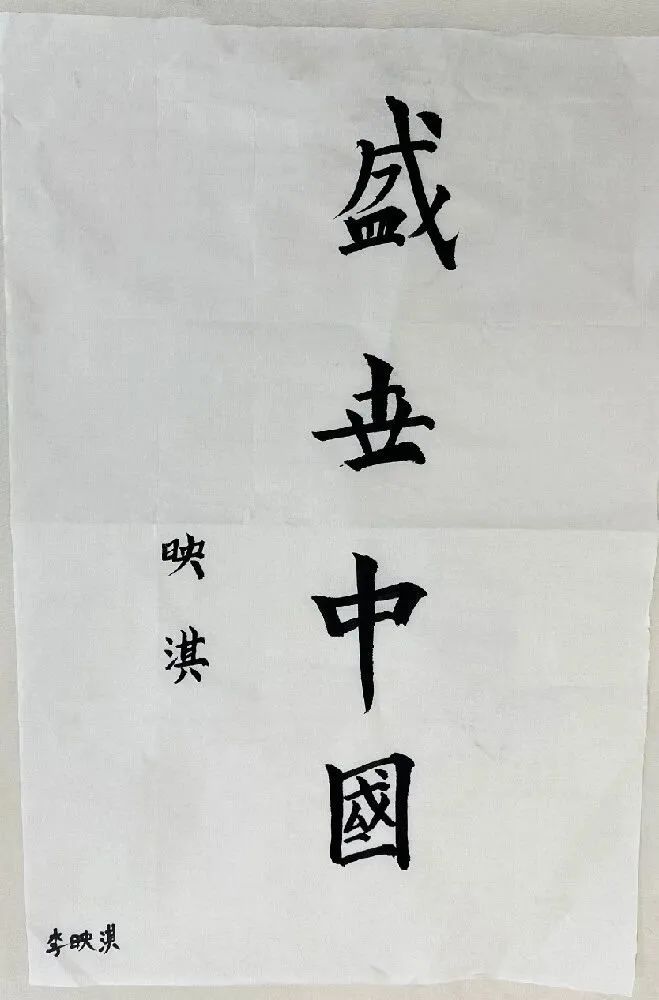 盛世中國
映淇
李映淇